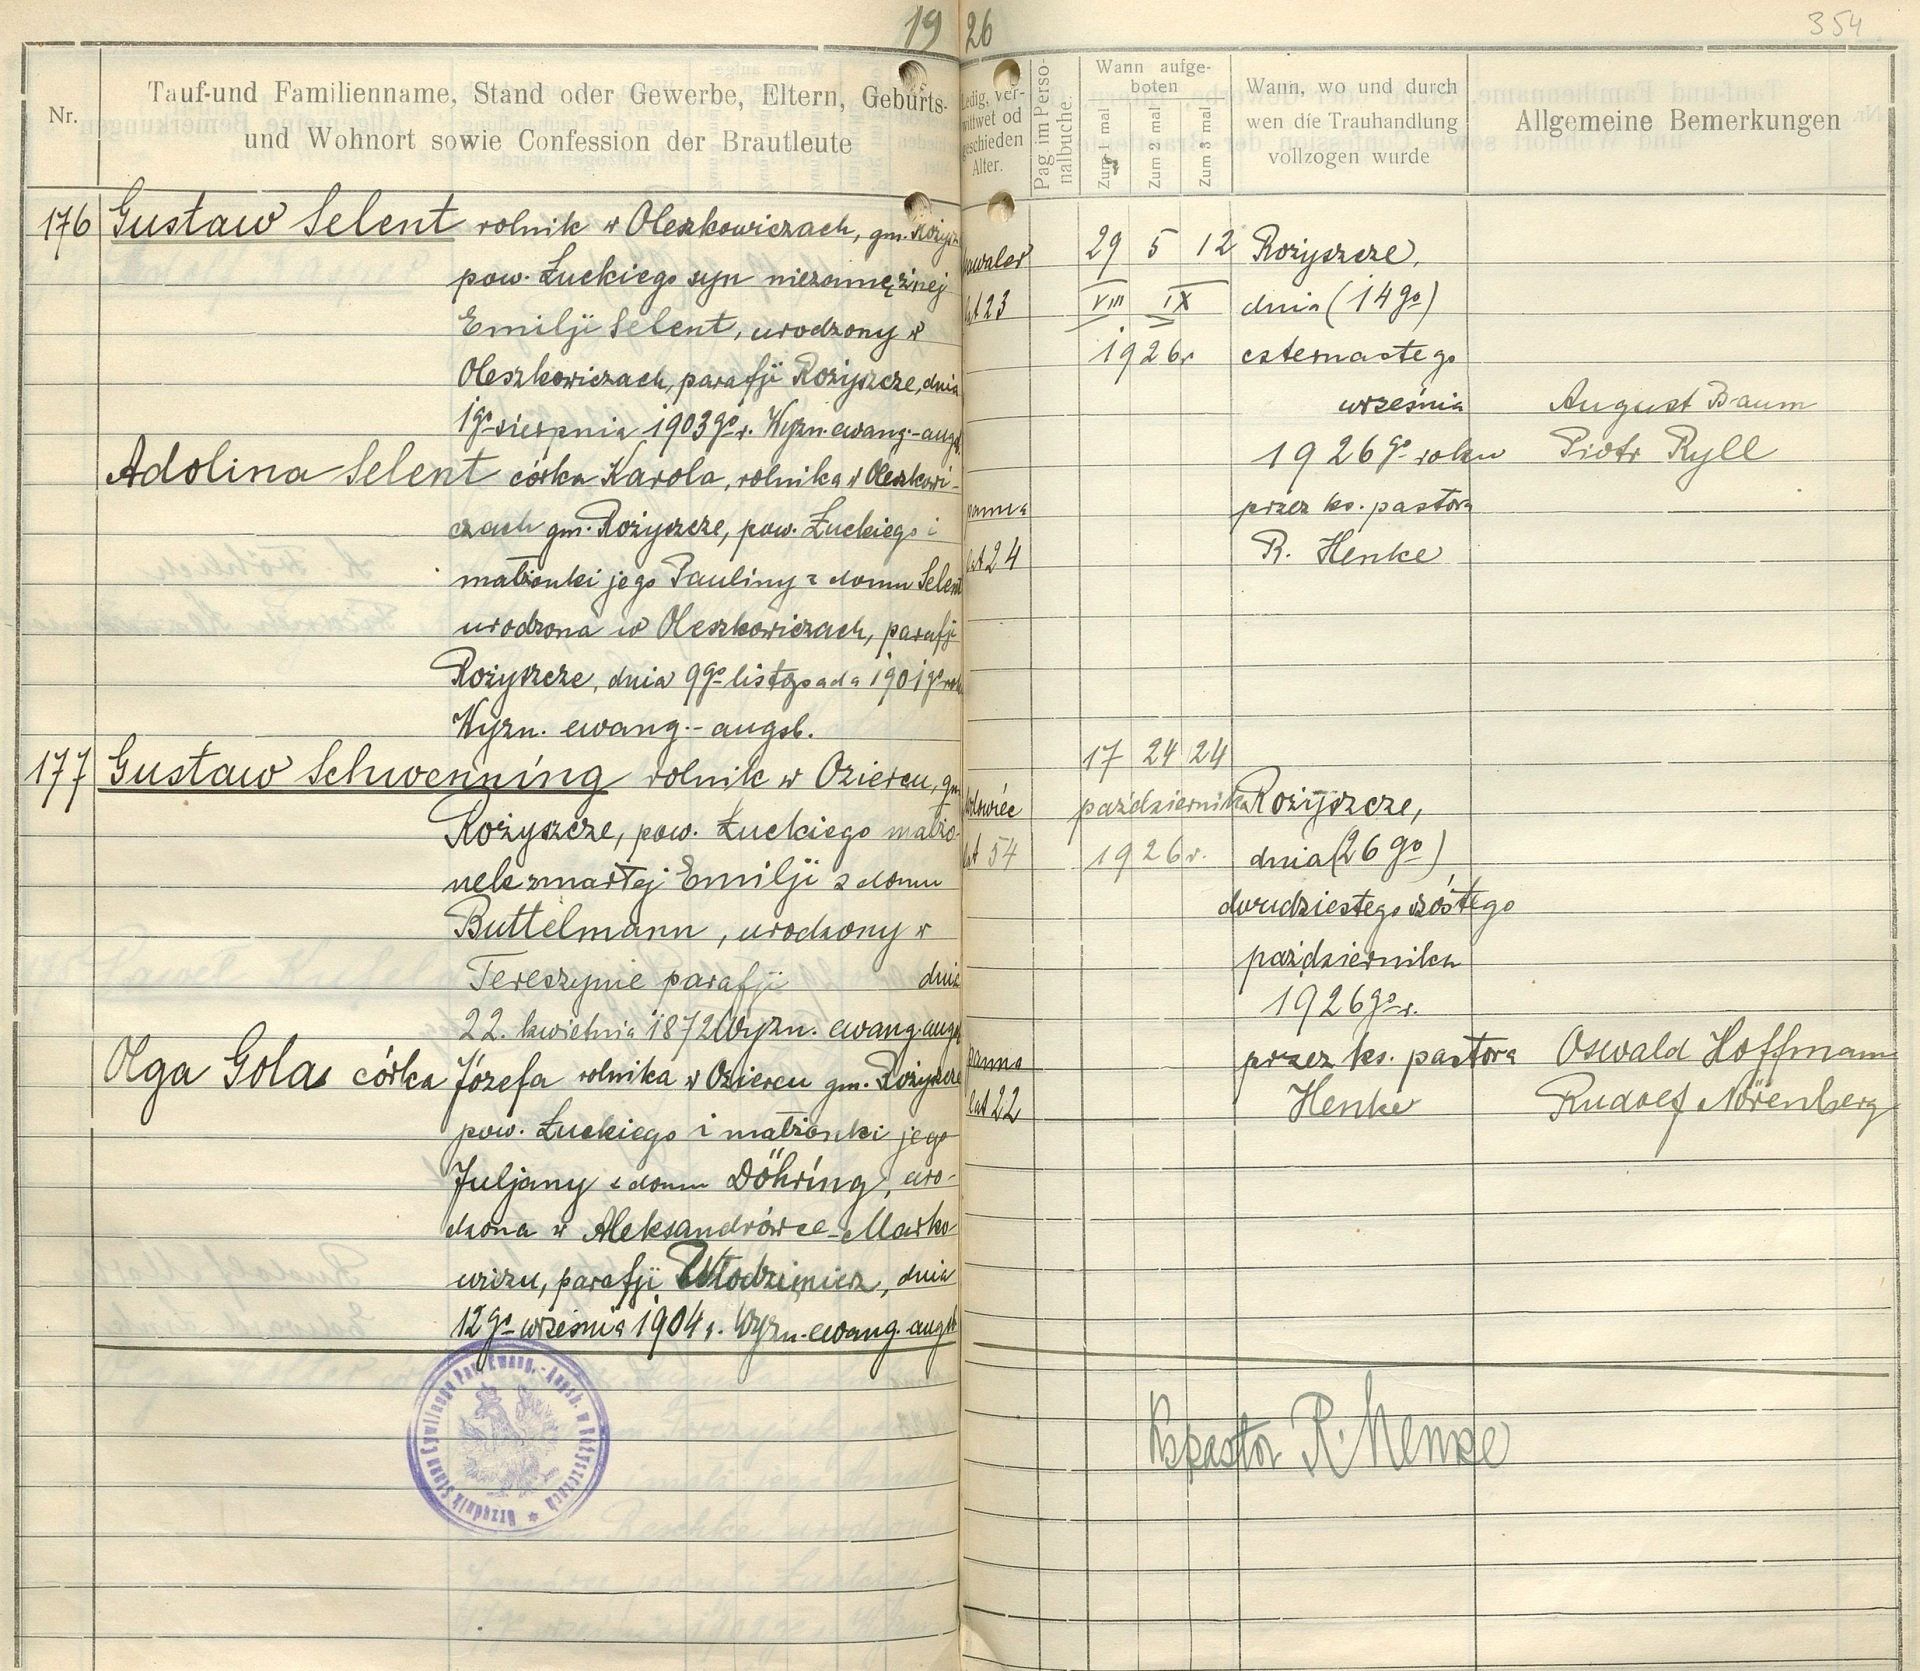 19 26
354
Nr.
Tauf-und Familienname, Stand oder Gewerbe, Eltern, Geburts-
und Wohnort sowie Confession der Brautleute
Ledig, ver-
wittwet od
geschieden
Alter.
Pag im Perso-
nalbuche.
Wann aufge-
boten
Zum 1 mal
Zum 2 mal
Zum 3 mal
Wann, wo und durch
wen die Trauhandlung
vollzogen wurde
Allgemeine Bemerkungen
176 Gustaw Selent rolnik w Oleszkowiczach, gm. Rożyszcz
pow. Łuckiego syn niezamężnej
Emilji Selent, urodzony w
Oleszkowiczach, parafji Rożyszcze, dnia
1go sierpnia 1903go r. Wyzn. ewang.-augsb.
kawaler
lat 23
29 5 12
VIII IX
1926 r
Rożyszcze,
dnia (14go)
czternastego
września
1926go roku
przez ks. pastora
R. Henke
August Baum
Piotr Ryll
Adolina Selent córka Karola, rolnika w Oleszkowi-
czach gm. Rożyszcze, pow. Łuckiego i
małżonki jego Pauliny z domu Selent
urodzona w Oleszkowiczach, parafji
Rożyszcze, dnia 9go listopada 1901go rok
Wyzn. ewang.-augsb.
panna
lat 24
177 Gustaw Schwenning rolnik w Oziercu, gm
Rożyszcze, pow. Łuckiego małżo-
nek zmarłej Emilji z domu
Buttelmann, urodzony w
Tereszynie parafji dnia
22. kwietnia 1872 Wyzn. ewang. augsb
wdowiec
lat 54
17 24 24
października
1926 r.
Rożyszcze,
dnia (26go)
dwudziestego szóstego
października
1926go r.
przez ks. pastora
Henke
Oswald Hoffmann
Rudolf Nörenberg
Olga Golas córka Józefa rolnika w Oziercu gm. Rożyszcze
pow. Łuckiego i małżonki jego
Juljany z domu Döhring, uro-
dzona w Aleksandrówce-Marko-
wiczu, parafji Włodzimierz, dnia
12go września 1904 r. Wyzn. ewang. augsb
panna
lat 22
Urzędnik Stanu Cywilnego Par. Ewang.-Augsb. w Rożyszczach
Ks pastor R. Henke